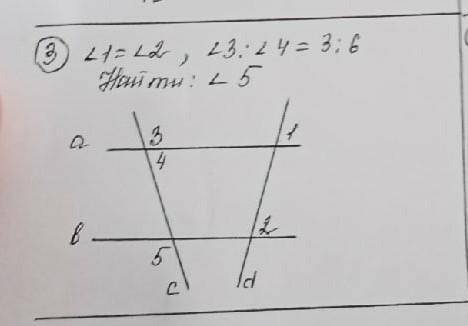 3 ∠1=∠2, ∠3:∠4=3:6
Найти: ∠5
a 3 1
4
b 2
5
c d